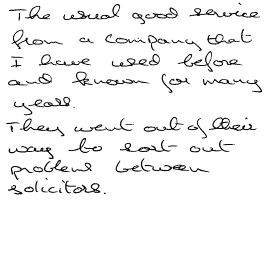 The usual good service
from a company that
I have used before
and known for many
years.
They went out of their
way to sort out
problems between
solicitors.